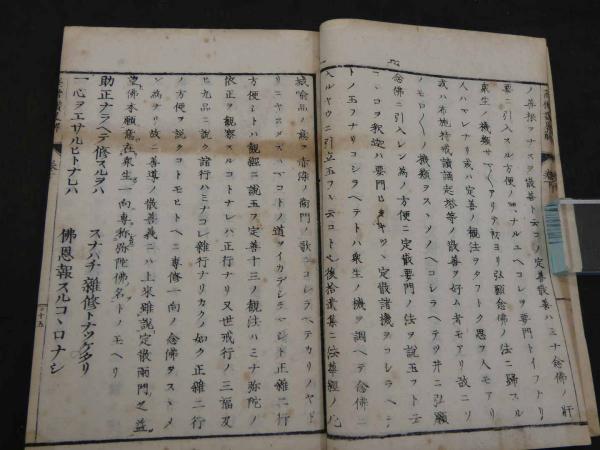 ノ善根ヲナスヲ散善ト云コノ定善散善ハミナ念佛ノ肝
要ニ引入スル方便ノ門ナルユヘコレヲ要門トイフナリ
衆生ノ機類サマ〱アリテ故ヨリ弘願念佛ノ法ニ歸スル
人ハマレナリ或ハ定善ノ觀法ヲタフトク思フ人モアリ
或ハ布施持戒讀誦起塔等ノ散善ヲ好ム者モアリ故ニソ
ノモロ〱ノ機類ヲスヽメンノヘコシラヘテ丼ニ弘願
念佛ニ引入レン為ノ方便ニ定散要門ノ法ヲ説玉フト云
コヽロヲ釈迦ハ要門ヒラキツヽ定散諸機ヲコシラヘテ
トノ玉フナリコシラヘテトハ衆生ノ機ヲ調ヘテ念佛ニ
入ルヤウニ引立玉フト云コト也後拾遺集ニ法華經ノ化
城喩品ノ意ヲ赤染ノ衛門ノ歌ニコシラヘテカリノヤド
リニヤスメズハマコトノ道ヲイカデシラマシト正雜二行
方便シトハ觀經ニ説玉フ定善十三ノ觀法ハミナ弥陀ノ
依正ヲ觀察スルコトナレハ正行ナリ又世戒行ノ三福及
ヒ九品ニ説ク諸行ハミナコレ雜行ナリカクノ如ク正雜二行
ノ方便ヲ説クコトモヒトヘニ専修一向ノ念佛ヲスヽメ
ン為ナリ故ニ善導ノ散善義ニハ上來雖説定散兩門之益
望佛本願意在衆生一向専称弥陀佛名トノ玉ヘリ
助正ナラヘテ修スルヲハ　スナハチ雜修トナツケタリ
一心ヲエサルヒトナレハ　佛恩報スルコヽロナシ